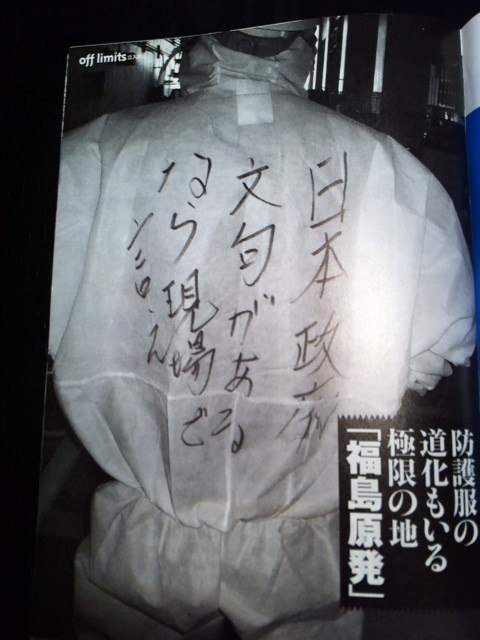 off limits
日本政府
文句がある
なら現場で
言え
防護服の
道化もいる
極限の地
「福島原発」